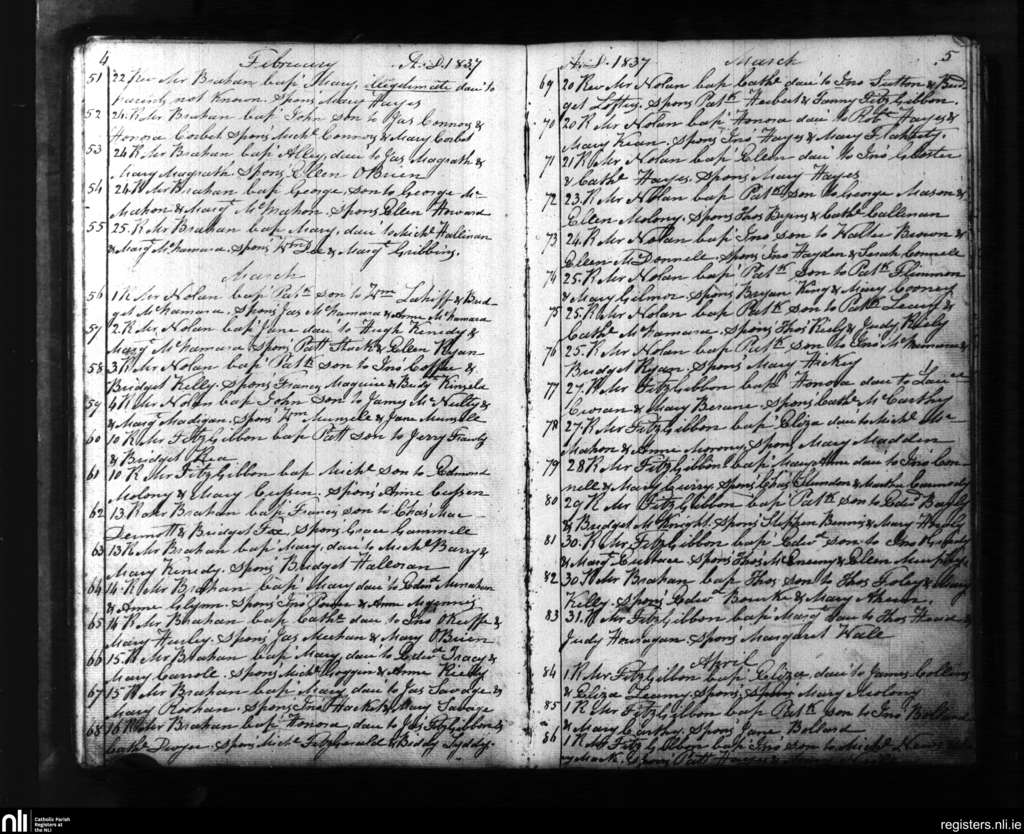 4 February A.D. 1837
51 22 Rev Mr Brahan bap Mary, illegitimate dau to
parents not known. Spons Mary Hayes
52 24. R Mr Brahan bap John son to Jas Connors &
Honora Corbet Spons Michl Connors & Mary Corbet
53 24 R Mr Brahan bap Alley, dau to Jas Magrath &
Mary Magrath Spons Ellen O'Brien
54 24 R Mr Brahan bap George, son to George Mc
Mahon & Margt McMahon, Spons Ellen Howard
55 25. R Mr Brahan bap Mary, dau to Michl Hallinan
& Margt McNamara, Spons Wm Lee & Margt Gribbins.
March
56 1 R Mr Nolan bap Patk son to Wm Lahiff & Brid-
get McNamara. Spons Jas McNamara & Anne McNamara
57 2. R Mr Nolan bap Jane dau to Hugh Kenedy &
Margt McNamara Spons Patt & Ellen Ryan
58 3 R Mr Nolan bap Patk son to Jno Coffee &
Bridget Kelly. Spons Francs Maguire & Bridt
59 4 R Mr Nolan bap John Son to James McNulty &
& Margt Madigan. Spons Wm Munsell & Jane Munsell
60 10 R Mr FitzGibbon bap Patt son to Jerry
& Bridget Rea
61 10 R Mr FitzGibbon bap Michl son to Edmond
Molony & Mary Cussen. Spons Anne Cussen
62 13. R Mr Brahan bap Francis son to Chas Mac-
Dermott & Bridget Fox Spons Grace Gammell
63 13 R Mr Brahan bap Mary, dau to Michl Barry &
Mary Kenedy. Spons Bridget Halloran
64 14. R Mr Brahan bap Mary dau to Edmt Minahan
& Anne Glynn. Spons Jno Power & Anne
65 14 R Mr Brahan bap Cathe dau to Jno O'Keeffe &
Mary Hurley. Spons Jas Meehan & Mary O'Brien
66 15. R Mr Brahan bap Mary, dau to Edwd Tracy &
Mary Carroll. Spons Michl Goggin & Anne Rielly
67 15 R Mr Brahan bap Mary dau to Jas Savage &
Mary Roohan. Spons Jno Hackett & Mary Savage
68 16 R Mr Brahan bap Honora, dau to Jas FitzGibbon &
Cathe Dwyer. Spons Michl FitzGerald & Biddy
A.D. 1837 March 5
69 20 Rev Mr Nolan bap Cathe dau to Jno Sutton & Brid
get Loftus. Spons Patk Herbert & Fanny FitzGibbon.
70 20 R Mr Nolan bap Honora dau to Robt Hayes &
Mary Kean. Spons Jno Hayes & Mary Flahherty.
71 21 R Mr Nolan bap Ellen dau to Jno Gloster
& Cathe Hayes. Spons Mary Hayes
72 23. R Mr Nolan bap Patk son to George Mason &
Ellen Molony. Spons Thos Byrns & Cathe Callinan
73 24. R Mr Nolan bap Jno son to Walter Brown &
Ellen McDonnell. Spons Jno Hayden & Sarah Connell
74 25. R Mr Nolan bap Patk Son to Patk
& Mary Gilmor Spons Bryan King & Mary Cooney
75 25. R Mr Nolan bap Patk son to Patk Leary &
Cathe McNamara. Spons Thos Kiely & Judy Kiely
76 25. R Mr Nolan bap Patk son to Jno McNamara &
Bridget Ryan. Spons Mary Hickey
77 27. R Mr FitzGibbon bap Honora dau to Laurce
& Mary Berane. Spons Cathe McCarthy
78 27. R Mr FitzGibbon bap Eliza dau to Michl Mc
Mahon & Anne Morony. Spons Mary Madden
79 28 R Mr FitzGibbon bap Mary Anne dau to Jno Con-
nell & Mary Curry. Spons Chas & Martha Carmody
80 29 R Mr FitzGibbon bap Patk son to Edwd
& Bridget McKnight. Spons Stephen Bennis & Mary
81 30. R Mr FitzGibbon bap Edwd son to Jno Kenedy
& Margt Eustace Spons Thos McEneny & Ellen Murphy
82 30 R Mr Brahan bap Thos son to Thos Foley & Mary
Kelly. Spons Edwd Bourke & Mary Ahern.
83 31. R Mr FitzGibbon bap Margt dau to Thos
Judy Houragan. Spons Margaret Wall
April
84 1 R Mr FitzGibbon bap Eliza dau to James Collins
& Eliza Leamy. Spons Spons Mary
85 1 R Mr FitzGibbon bap Patk son to Jno Bolland
& Mary Carthy. Spons Jane Bolland
86 1 R Mr FitzGibbon bap Jno son to Michl
Spons Patt Hayes &
nli Catholic Parish
Registers at
the NLI
registers.nli.ie